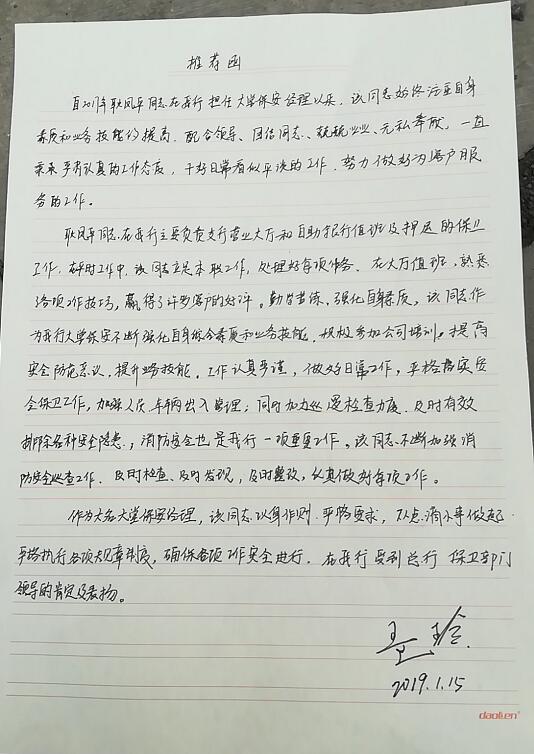 推荐函
自2011年耿凤早同志在我行担任大堂保安经理以来，该同志始终注重自身
素质和业务技能的提高，配合领导、团结同志、兢兢业业、无私奉献，一直
秉承严肃认真的工作态度，干好日常看似平淡的工作，努力做好为客户服
务的工作。
耿凤早同志在我行主要负责支行营业大厅和自助银行值班及押运的保卫
工作，在平时工作中，该同志立足本职工作，处理好每项事务。在大厅值班，熟悉
各项工作技巧，赢得了许多客户的好评。勤学苦练，强化自身素质，该同志作
为我行大堂保安不断强化自身综合素质和业务技能，积极参加公司培训，提高
安全防范意识，提升业务技能。工作认真严谨，做好日常工作，严格落实安
全保卫工作，加强人员、车辆出入管理；同时加大巡逻检查力度，及时有效
排除各种安全隐患，消防安全也是我行一项重要工作。该同志不断加强消
防安全巡查工作，及时检查、及时发现，及时整改，认真做到每项工作。
作为一名大堂保安经理，该同志以身作则，严格要求，从点滴小事做起，
严格执行各项规章制度，确保各项工作安全进行，在我行受到总行保卫部门
领导的肯定及表扬。
2019.1.15
daolien